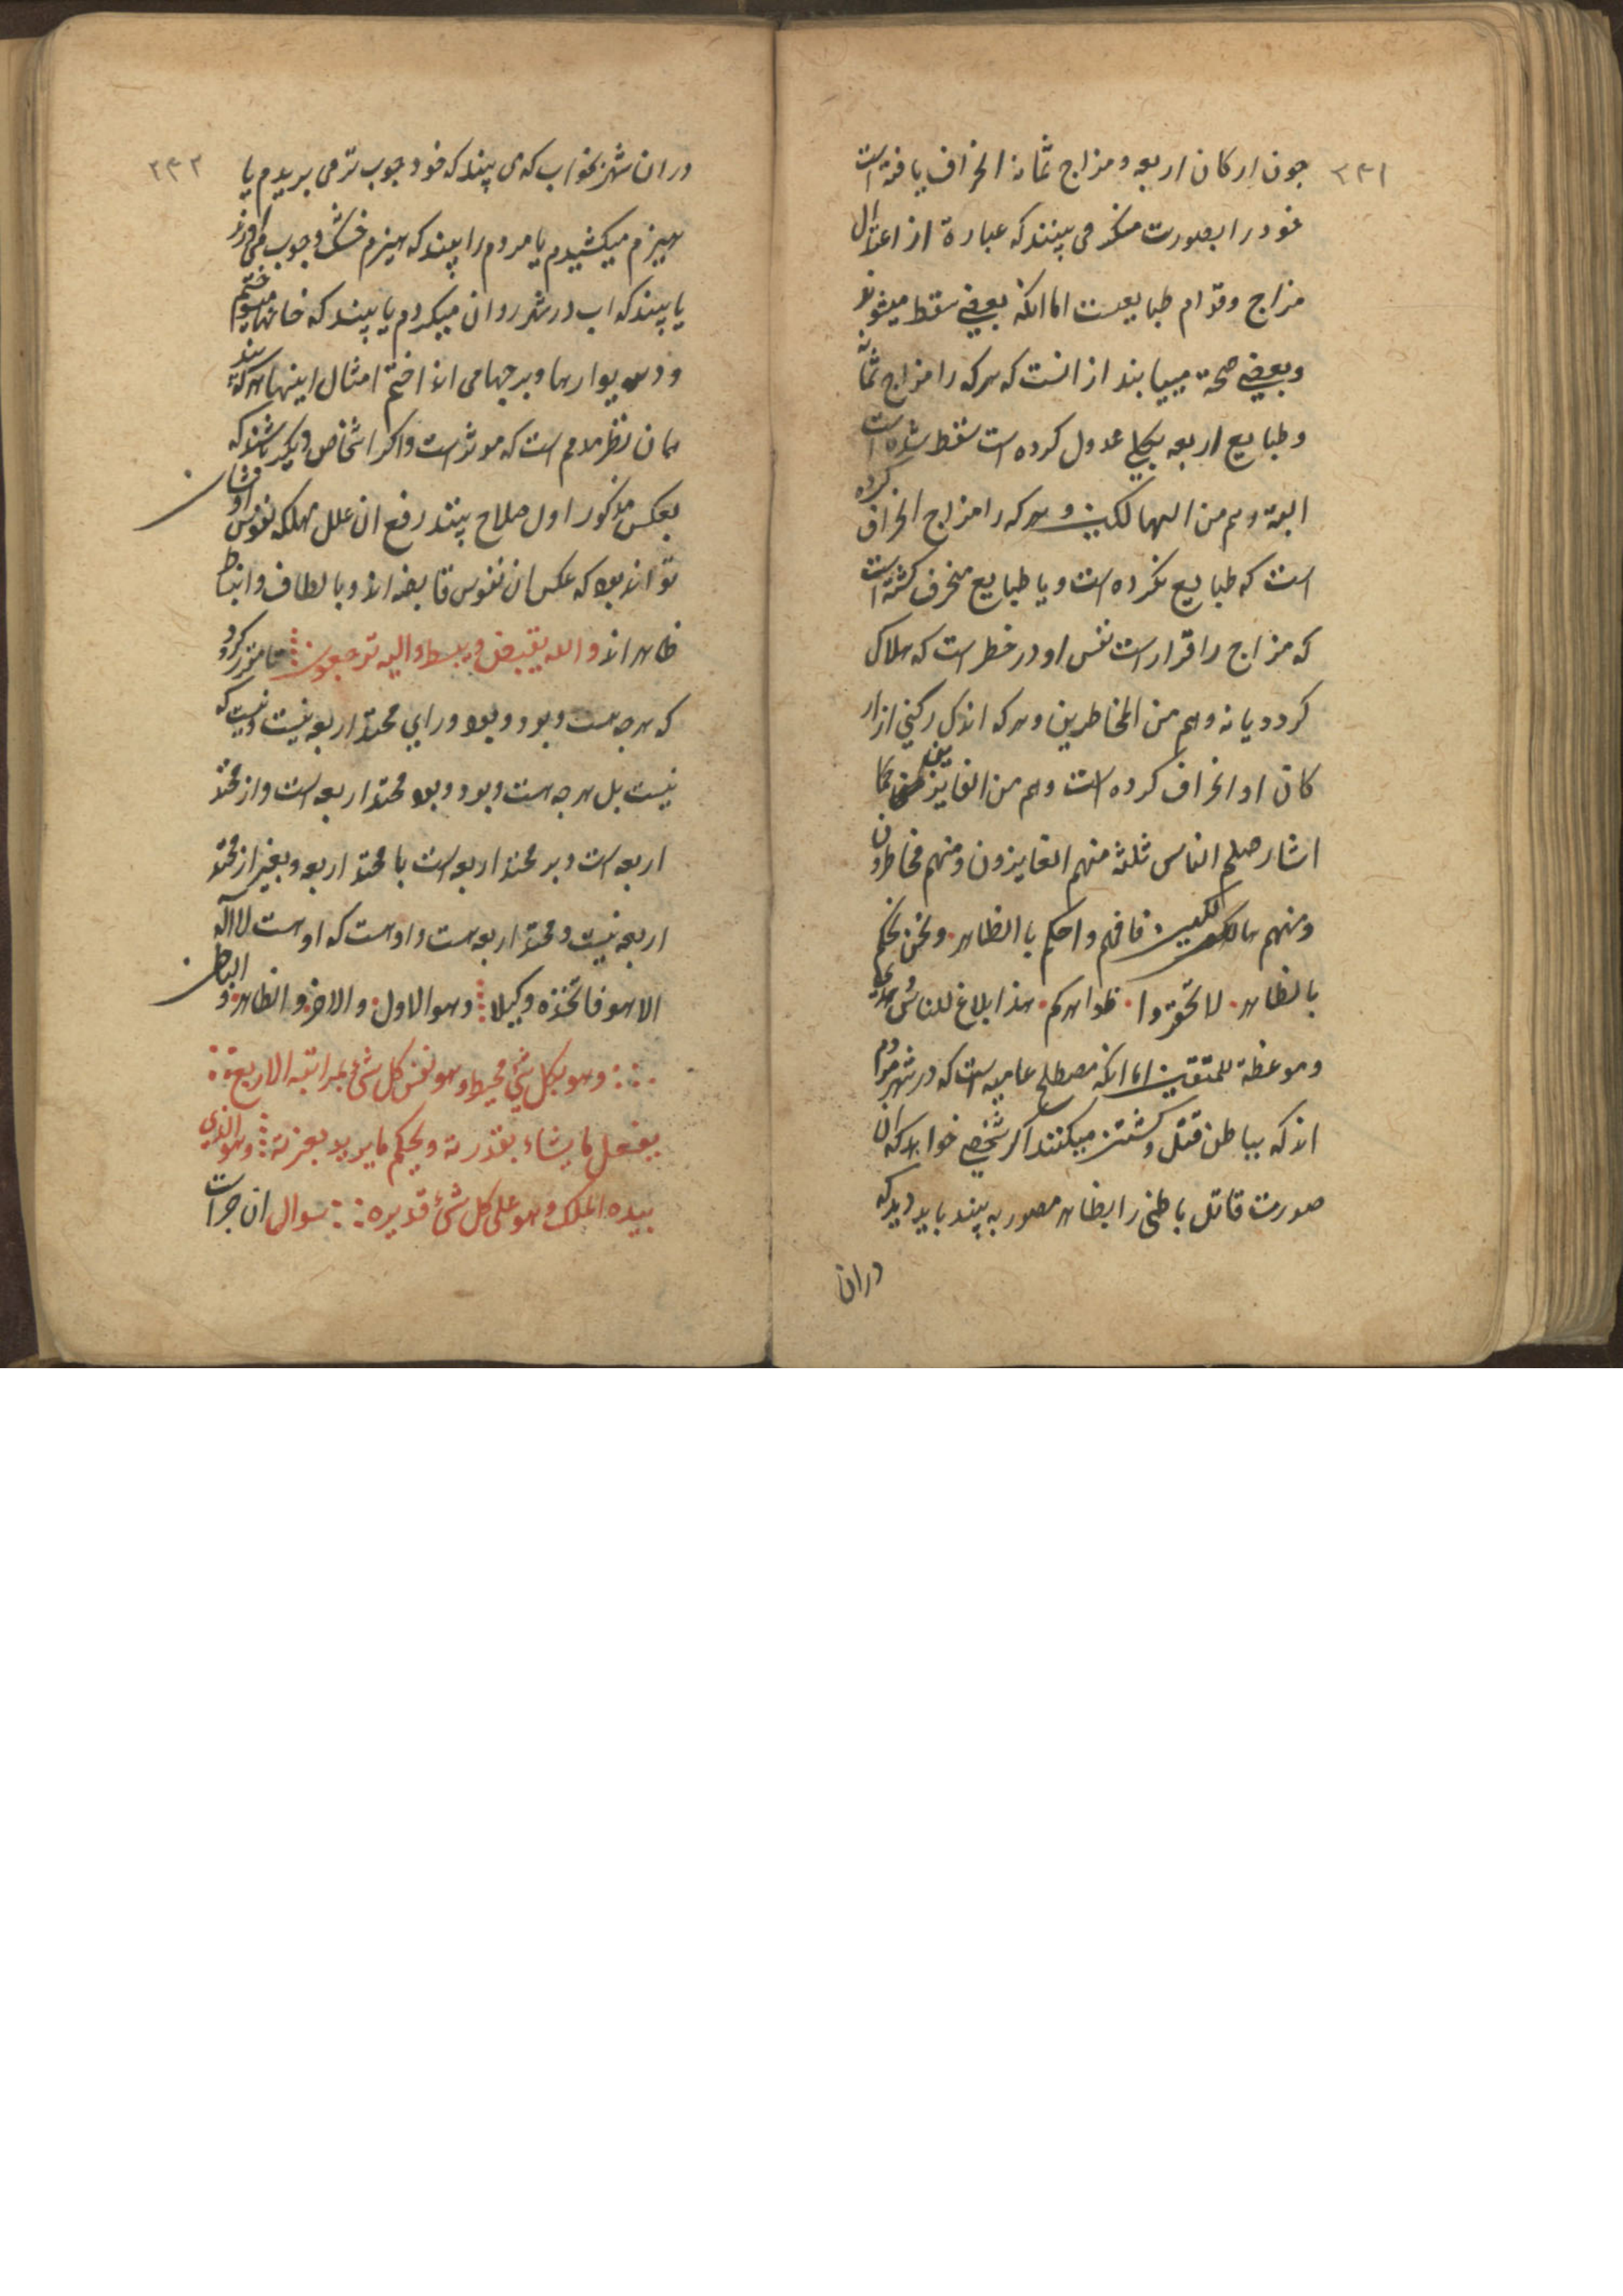 ۲۳۱
جون ارکان اربعه و مزاج ثمانه انحراف یافته است
خود را بصورت منکر می بینند که عبارة از اعتدال
مزاج و قوام طبایعست اما انکه بعضی سقط میشوند
و بعضی صحة مییابند از انست که هرکه را مزاج ثمانه
و طبایع اربعه بکلی عدول کرده است سقط شده است
البته و هم من الهالکین و هرکه را مزاج انحراف کرده
است که طبایع نکرده است و یا طبایع منحرف کشته است
که مزاج را قرار است نفس او در خطر است که هلاک
کردد یا نه و هم من المخاطرین و هرکه اندک رکنی از ار
کان او انحراف کرده است و هم من الفایزین کما
اشار صلم الناس ثلثة منهم الفایزون و منهم مخاطرون
و منهم هالکین فافهم و احکم با الظاهر و نحن نحکم
بالظاهر لا تحقروا ظواهرکم هذا بلاغ للناس و هدی
و موعظة للمتقین اما انکه مصطلح عامیه است که در شهر مردم
اند که بباطن قتل و کشتن میکنند اکر شخصی خواهد که ان
صورت قاتل باطنی را بظاهر مصور به بیند باید دید که
دران
۲۳۲
دران شهر بخواب که می بیند که خود جوب تر می بریدم یا
هیزم میکشیدم یا مردم را بیند که هیزم خشک و جوب می
یا بیند که اب در شهر روان میکردم یا بیند که خانها
و دیوارها و برجها می اند اختم امثال اینها هر که بیند
همان نظر مردم است که موثر است و اکر اشخاص دیکر باشند که
بعکس مذکور اول صلاح بینند رفع ان علل مهلکه نفوس اوشان
تواند بود که عکس ان نفوس قابضه اند و بالطاف و انبساط
ظاهر اند و الله یقبض و یبسط و الیه ترجعون تا مقرر کردد
که هرجه هست و بود و بود ورای محمد اربعه نیست و نیست که
نیست بل هرجه هست و بود و بود محمد اربعه است و از محمد
اربعه است و بر محمد اربعه است با محمد اربعه و بغیر از محمد
اربعه نیست و محمد اربعه است و اوست که اوست لا اله
الا هو فاتخذه وکیلا و هو الاول و الاخر و الظاهر و الباطن
و هو بکل شیء محیط و هو نفس کل شیء بمراتبه الاربع
یفعل ما یشاء بقدرته و یحکم ما یرید بعزته و هو الذی
بیده الملک و هو علی کل شیء قدیره سوال ان جراست